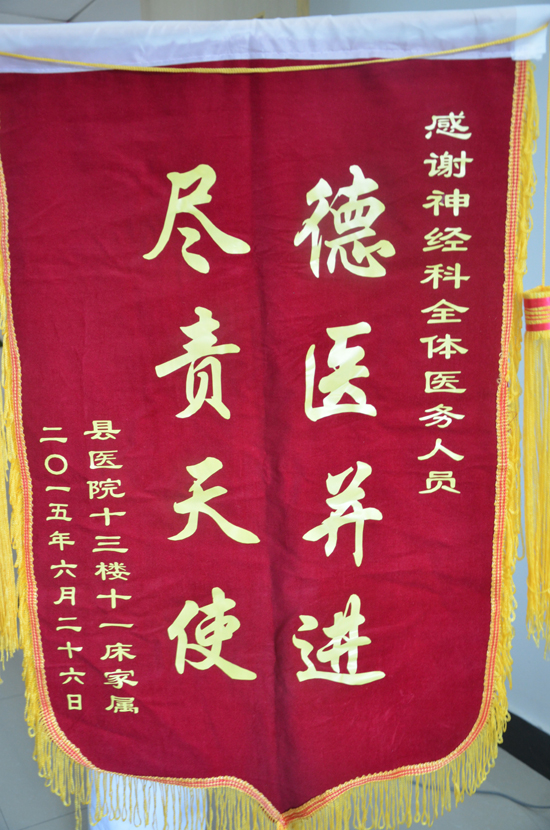 感谢神经科全体医务人员
德医并进
尽责天使
县医院十三楼十一床家属
二〇一五年六月二十六日